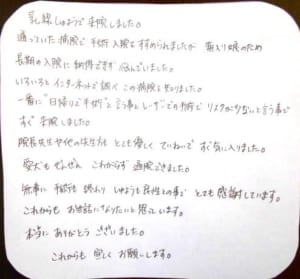 乳腺しゅようで来院しました。
通っていた病院で手術入院をすすめられましたが 寄り目のため
長期の入院に納得できず悩んでいました。
いろいろとインターネットで調べ この病院を知りました。
一番に"日帰りで手術"と言う事とレーザーでの手術でリスクが少ないと言う事で
すぐ来院しました。
院長先生や他の先生方も とても優しく ていねいで すぐ気に入りました。
愛犬もぜんぜん こわがらず 通院できました。
無事に 手術も 終わり しゅようも良性との事で とても感謝しています。
これからも お世話になりたいと思っています。
本当に ありがとう ございました。
これからも 宜しく お願いします。